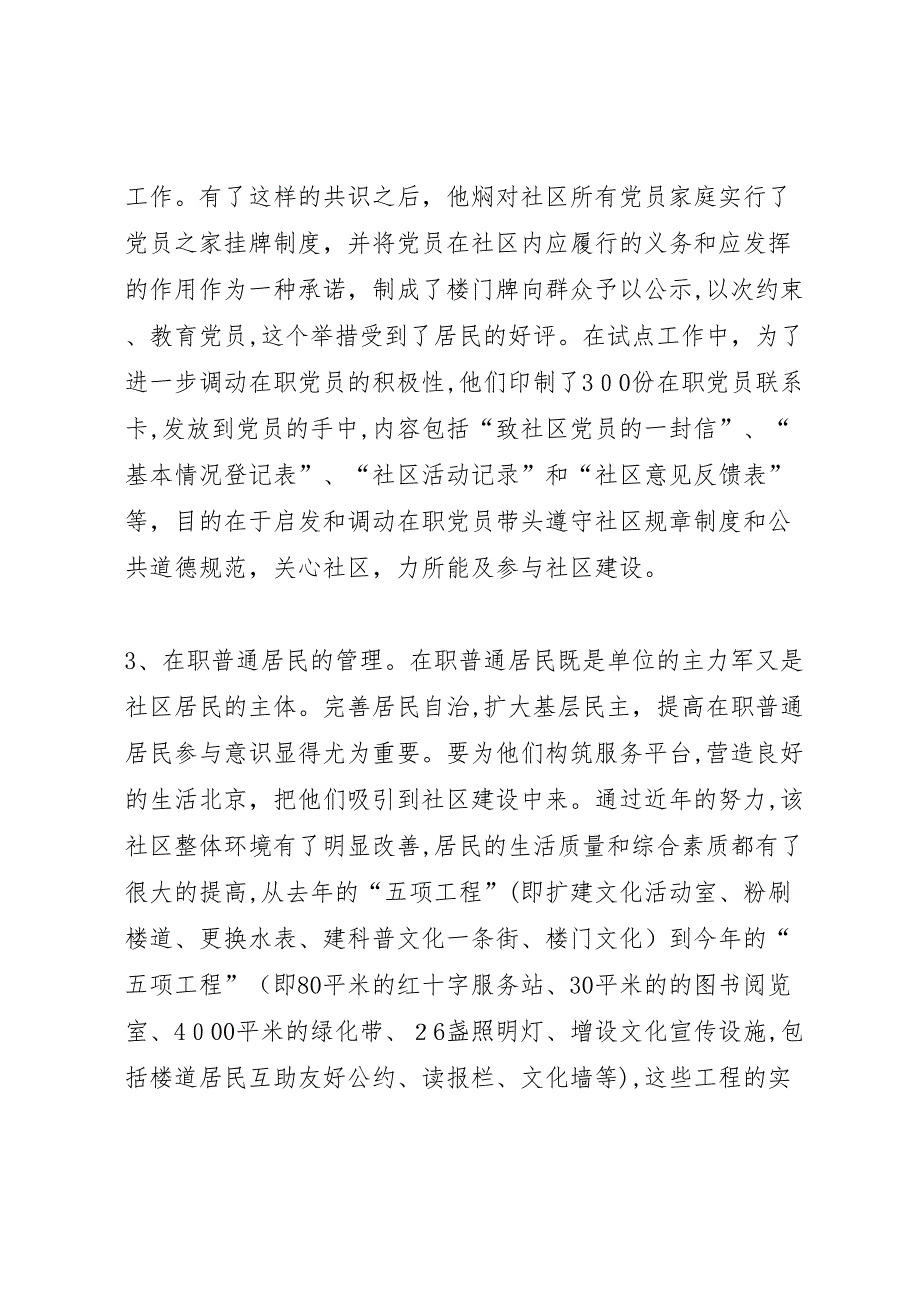 工作。有了这样的共识之后，他焖对社区所有党员家庭实行了
党员之家挂牌制度，并将党员在社区内应履行的义务和应发挥
的作用作为一种承诺，制成了楼门牌向群众予以公示,以次约束
、教育党员,这个举措受到了居民的好评。在试点工作中，为了
进一步调动在职党员的积极性,他们印制了300份在职党员联系
卡,发放到党员的手中,内容包括“致社区党员的一封信”、“
基本情况登记表”、“社区活动记录”和“社区意见反馈表”
等，目的在于启发和调动在职党员带头遵守社区规章制度和公
共道德规范，关心社区，力所能及参与社区建设。
3、在职普通居民的管理。在职普通居民既是单位的主力军又是
社区居民的主体。完善居民自治,扩大基层民主，提高在职普通
居民参与意识显得尤为重要。要为他们构筑服务平台,营造良好
的生活北京，把他们吸引到社区建设中来。通过近年的努力,该
社区整体环境有了明显改善,居民的生活质量和综合素质都有了
很大的提高,从去年的“五项工程”(即扩建文化活动室、粉刷
楼道、更换水表、建科普文化一条街、楼门文化）到今年的“
五项工程”（即80平米的红十字服务站、30平米的的图书阅览
室、4000平米的绿化带、26盏照明灯、增设文化宣传设施,包
括楼道居民互助友好公约、读报栏、文化墙等),这些工程的实